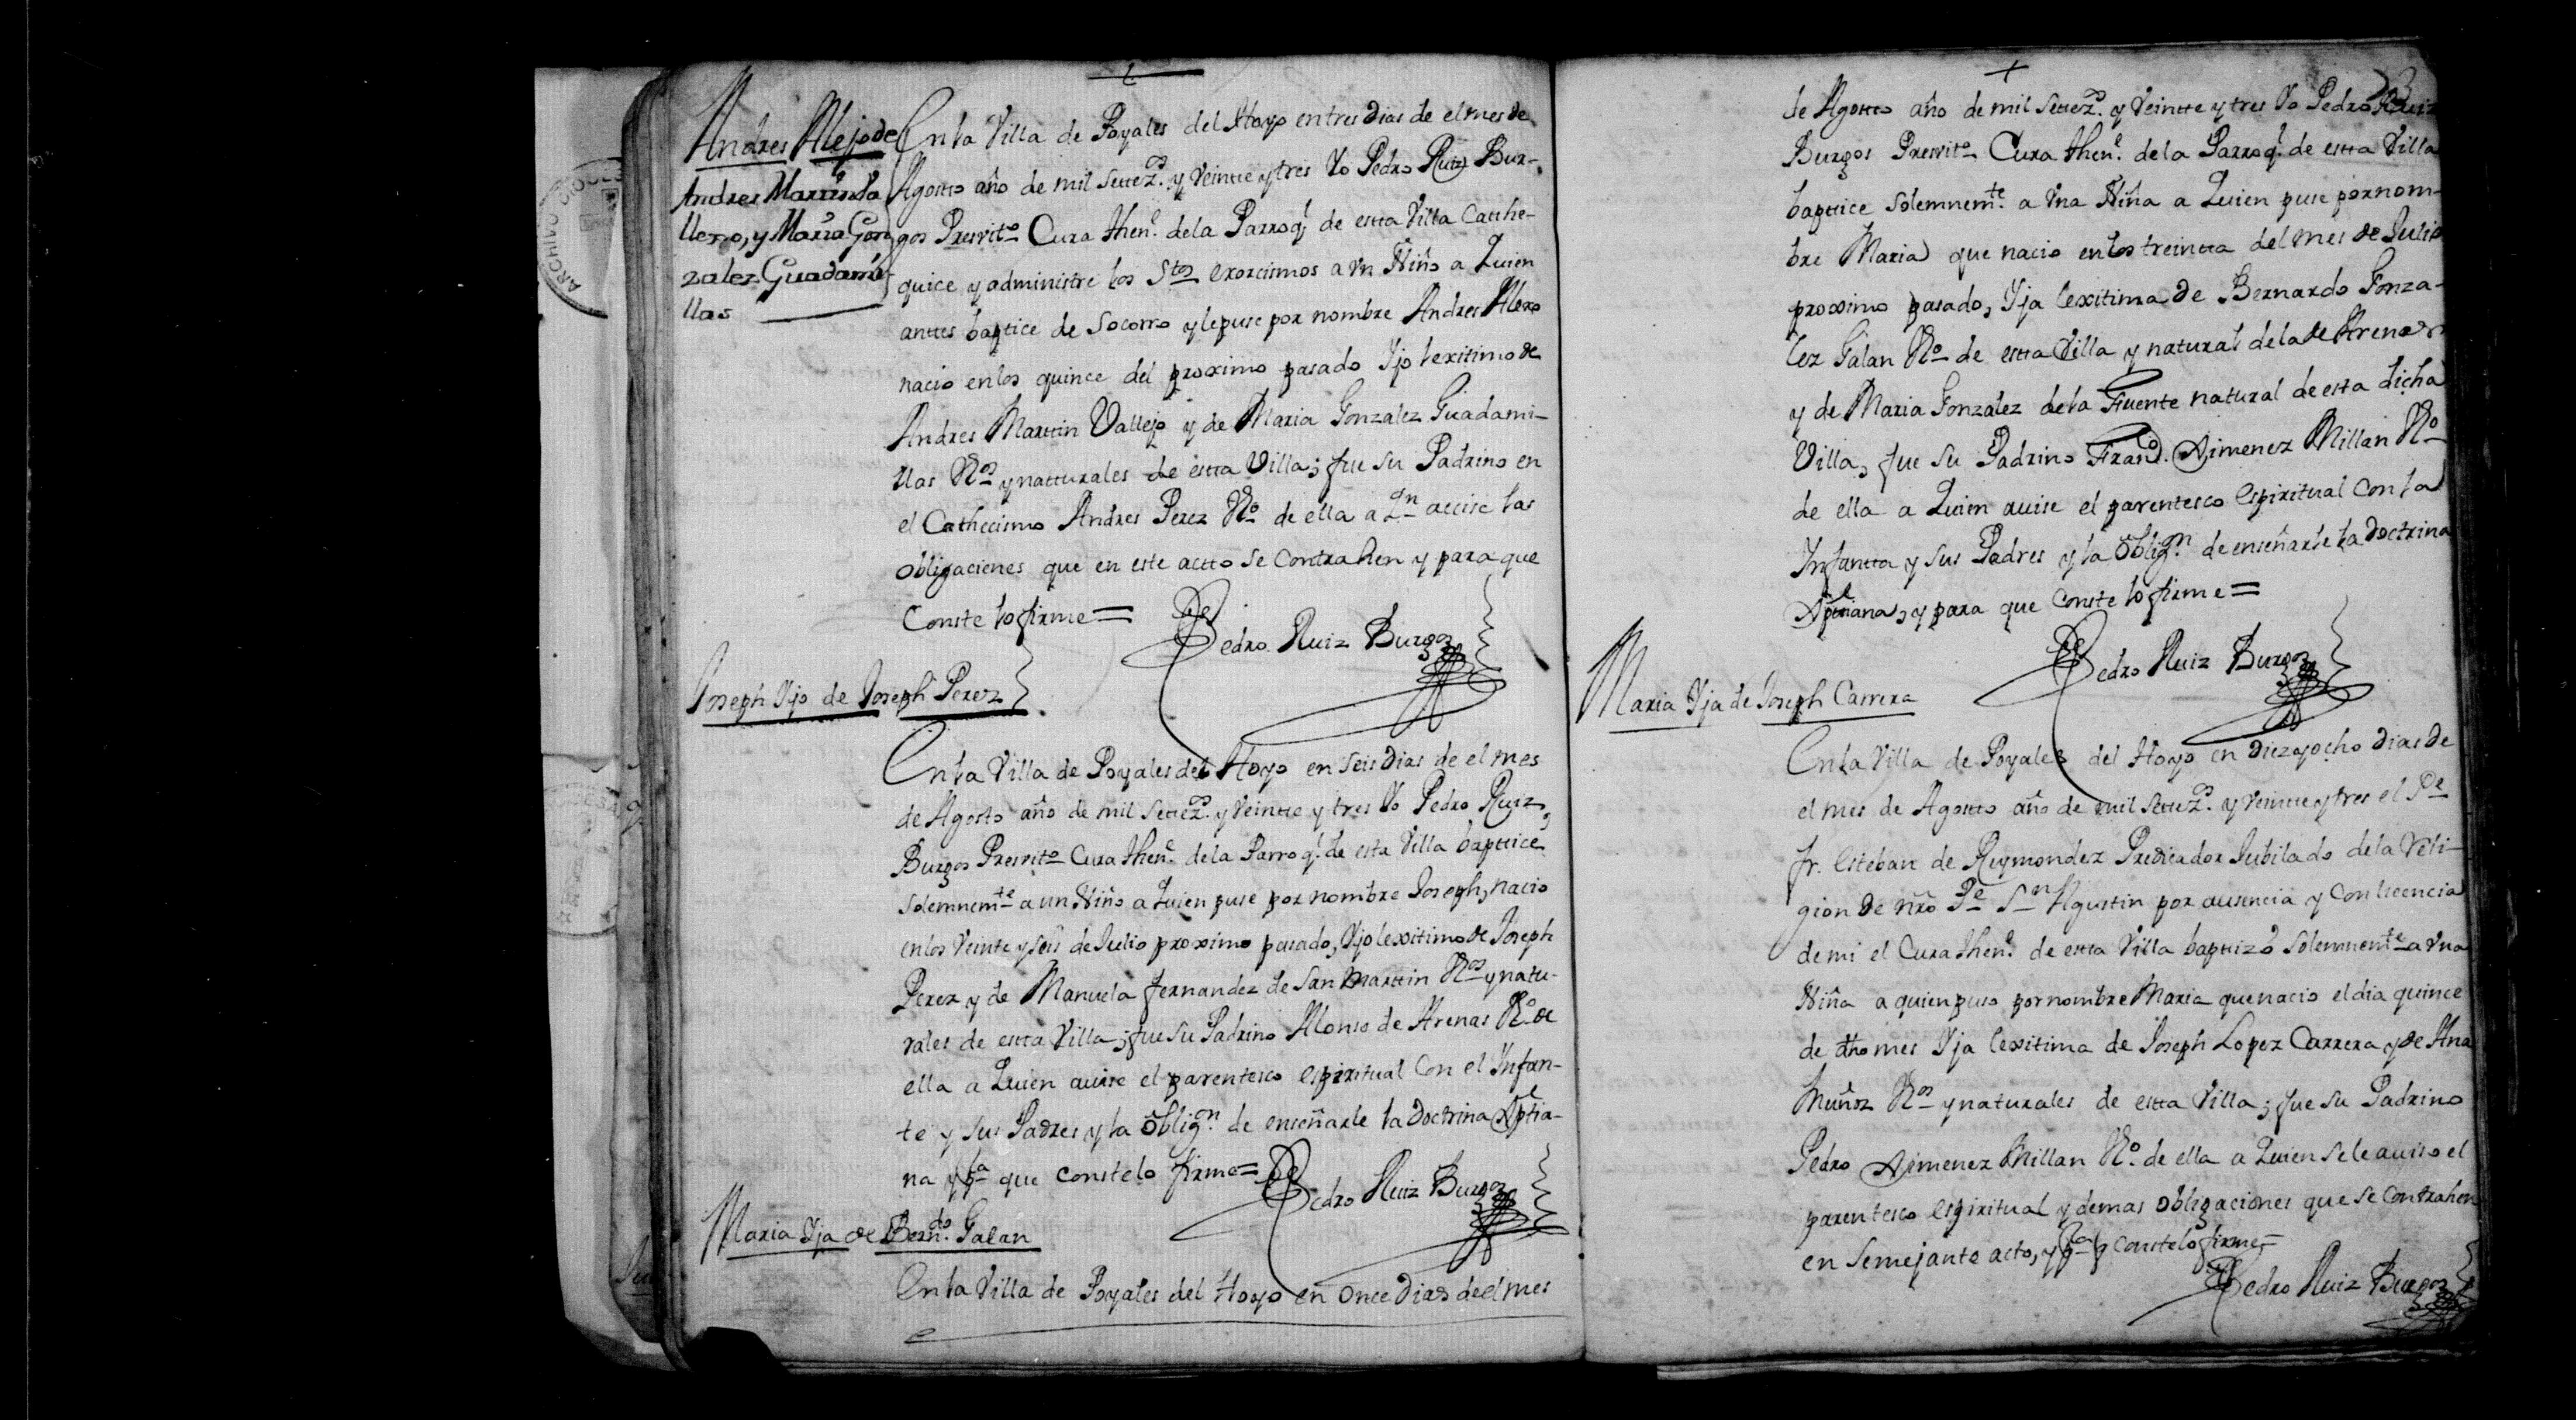 Andres Alejo de
Andres Martin Va
llejo, y Maria Gon
zalez Guadami
llas
En la Villa de Poyales del Hoyo en tres dias de el mes de
Agosto año de mil settez.os y Veintte y tres Yo Pedro Ruiz Bur-
gos Presvit.o Cura then.e de la Parroq.l de estta Villa Catthe-
quice y administre los S.tos exorcismos a Vn Niño a Quien
anttes baptice de Socorro y le puse por nombre Andres Alexo
nacio en los quince del proximo pasado Yjo lexitimo de
Andres Marttin Vallejo y de Maria Gonzalez Guadami-
llas V.os y natturales de estta Villa; fue su Padrino en
el Cathecismo Andres Perez V.o de ella a Q.n avise las
obligaciones que en este actto se Contrahen y para que
Conste lo firme =
Pedro Ruiz Burgos
Joseph Yjo de Joseph Perez
En la Villa de Poyales del Hoyo en seis dias de el mes
de Agosto año de mil settez.os y Veintte y tres Yo Pedro Ruiz
Burgos Presvit.o Cura then.e de la Parroq.l de esta Villa bapttice
solemnem.te a un Niño a Quien puse por nombre Joseph, nacio
en los Veinte y seis de Julio proximo pasado, Yjo lexitimo de Joseph
Perez y de Manuela fernandez de San Marttin V.os y natu-
rales de estta Villa; fue su Padrino Alonso de Arenas V.o de
ella a Quien avise el parentesco espiritual Con el Ynfan-
te y sus Padres y la oblig.on de enseñarle la Doctrina Xptia-
na y p.a que conste lo firme =
Pedro Ruiz Burgos
Maria Yja de Bern.do Galan
En la Villa de Poyales del Hoyo en once Dias de el mes
de Agosto año de mil settez.os y Veintte y tres Yo Pedro Ruiz
Burgos Presvit.o Cura then.e de la Parroq.l de estta Villa
bapttice solemnem.te a Vna Niña a Quien puse por nom-
bre Maria que nacio en los treintta del mes de Julio
proximo pasado, Yja lexitima de Bernardo Gonza-
lez Galan V.o de estta Villa y natural de la de Arenas
y de Maria Gonzalez de la Fuente natural de esta dicha
Villa, fue su Padrino Fran.co Ximenez Millan V.o
de ella a Quien avise el parentesco espiritual Con la
Ynfantta y sus Padres y la oblig.on de enseñarle la Doctrina
Xptiana, y para que Conste lo firme =
Pedro Ruiz Burgos
Maria Yja de Joseph Carrera
En la Villa de Poyales del Hoyo en diez y ocho dias de
el mes de Agostto año de mil settez.os y Veintte y tres el P.e
fr. Esteban de Reymondez Predicador Jubilado de la Reli-
gion de nro P.e S.n Agustin por ausencia y Con licencia
de mi el Cura then.e de estta Villa baptizó solemnem.te a Vna
Niña a quien puso por nombre Maria que nacio el dia quince
de dho mes Yja lexitima de Joseph Lopez Carrera y de Ana
Muñoz V.os y naturales de estta Villa; fue su Padrino
Pedro Ximenez Millan V.o de ella a Quien se le aviso el
parentesco espiritual y demas obligaciones que se Contrahen
en semejante acto, y p.a q conste lo firme =
Pedro Ruiz Burgos